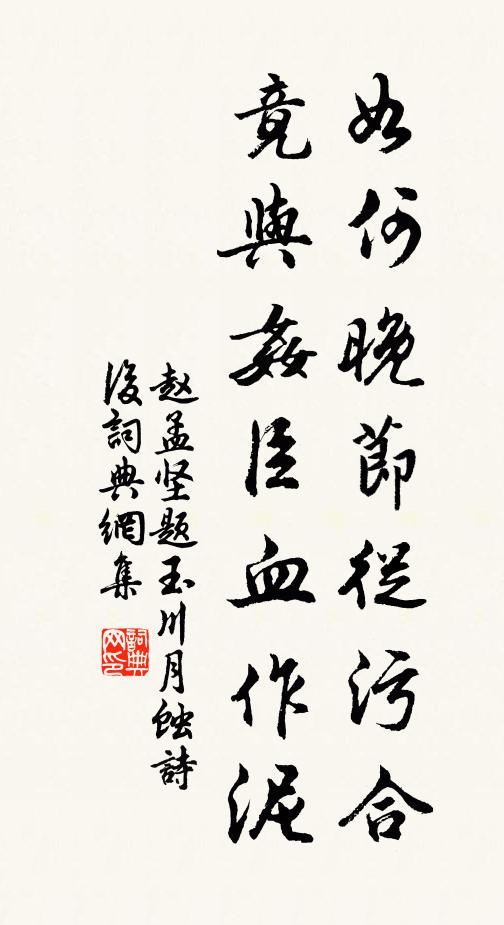 如何晚節從污合
竟與姦臣血作泥
赵孟坚题玉川月蝕詩
後詞典網集
詞典网印